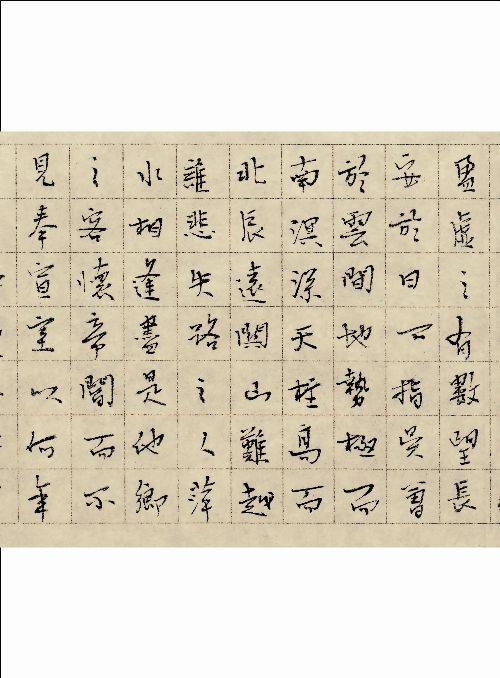 盈虛之有數望長
安於日下指吳會
於雲間地勢極而
南溟深天柱高而
北辰遠關山難越
誰悲失路之人萍
水相逢盡是他鄉
之客懷帝閽而不
見奉宣室以何年